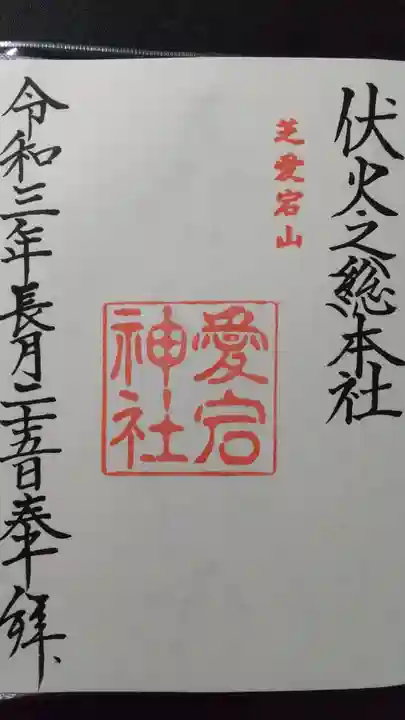 伏火之總本社
芝愛宕山
愛宕
神社
令和三年長月二十五日奉拝